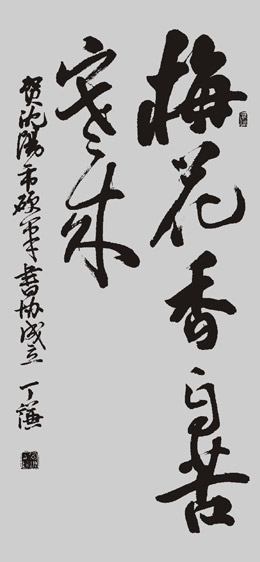 梅花香自苦
寒来
贺沈阳市硬笔书协成立 丁谦